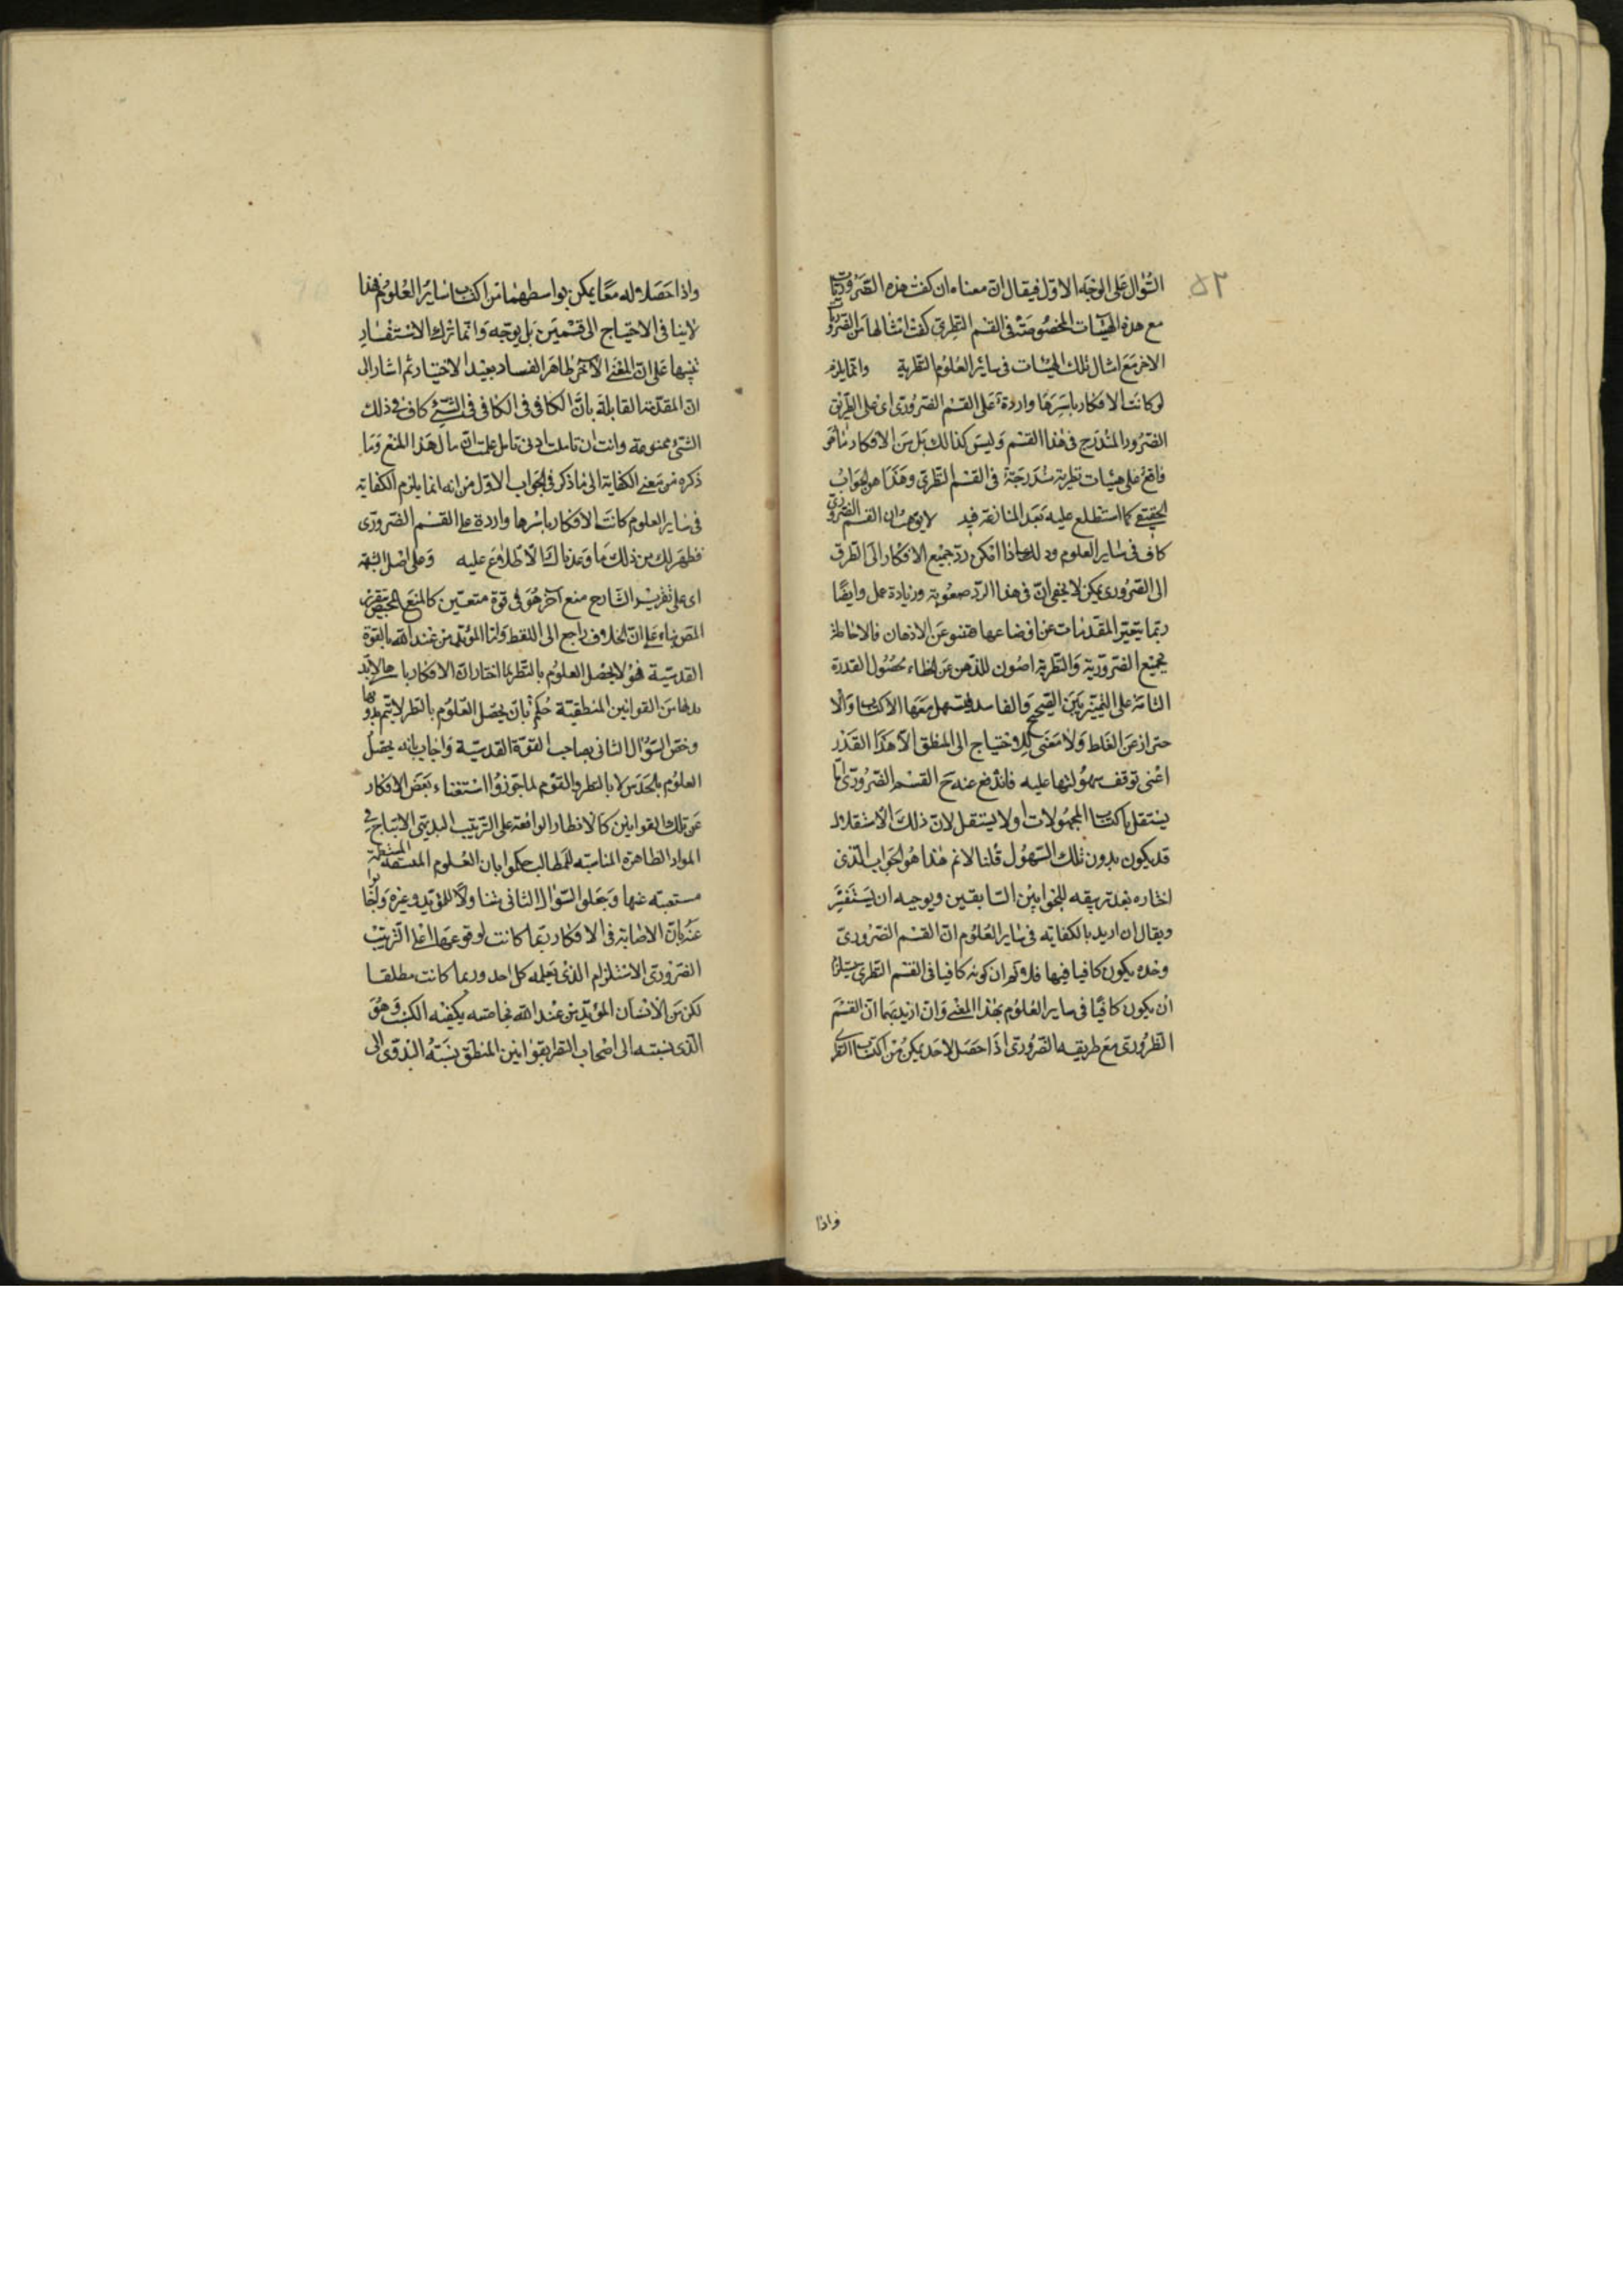 ٥٢
السؤال على الوجه الاول فيقال ان معناه ان كفت هذه الضروريات
مع هذه الهيئات المخصوصة في القسم النظري كفت امثالها من الضروريات
الاخر مع امثال تلك الهيئات في سائر العلوم النظرية وانما يلزم
لو كانت الافكار باسرها واردة على القسم الضروري اي على الطريق
الضرور المندرج في هذا القسم وليس كذلك بل من الافكار ما هو
واقع على هيئات نظرية مندرجة في القسم النظري وهذا هو الجواب
الحقيقي كما استطلع عليه بعد المنازعة فيه لا يوهم ان القسم الضروري
كاف في ساير العلوم اذا امكن رد جميع الافكار الى الطرق
الى الضروري يمكن لا يخفى ان في هذا الرد صعوبة وزيادة عمل وايضا
ربما يتغير المقدمات عن اوضاعها فتنبو عن الاذهان فالاحاطة
بجميع الضرورية والنظرية اصون للذهن عن الخطاء بحصول القدرة
التامة على التمييز بين الصحيح والفاسد فتسهل معها الاكتساب والا
حتراز عن الغلط ولا معنى للاحتياج الى المنطق الا هذا القدر
اعنى توقف سهولتها عليه فاندفع عنه ح القسم الضروري اما
يستقل باكتساب المجهولات اولا يستقل لان ذلك الاستقلال
قد يكون بدون تلك السهول قلنا لانم هذا هو الجواب الذي
اختاره بعد تزييفه للجوابين السابقين وتوجيه ان يستفسر
ويقال ان اريد بالكفاية في ساير العلوم ان القسم الضروري
وحده يكون كافيا فيها فلا نم ان كونه كافيا في القسم النظري يستلزم
ان يكون كافيا في ساير العلوم بهذا المعنى وان اريد بها ان القسم
الظروري مع طريقه الضروري اذا حصل لاحد يمكن من اكتساب النظري
واذا
واذا حصلا له معا يمكن بواسطهما من اكتساب ساير العلوم فهذا
لاينافي الاحتياج الى قسمين بل يوجبه وانما ترك الاستفسار
تنبيها على ان المعنى الآخر ظاهر الفساد بعيد الاختيار ثم اشار الى
ان المقدمة القابلة بان الكافي في الكافي في الشيء كاف في ذلك
الشئ ممنوعة وانت ان تاملت ادنى تامل علمت ان مال هذا المنع وما
ذكره من معنى الكفاية الى ما ذكر في الجواب الاول من انه انما يلزم الكفاية
في ساير العلوم كانت الافكار باسرها واردة على القسم الضروري
فظهر لك من ذلك ما وعدناك الاطلاع عليه وعلى اصل الشبهة
اى على تقرير الشارح منع آخر هو في قوة متعين كالمنع
المص بناء على ان الخلاف راجع الى اللفظ واما المؤيد من عند الله بالقوة
القدسية فهو لا يحصل العلوم بالنظر لما اختار ان الافكار باسرها لابد
لها من القوانين المنطقية حكم بان يحصل العلوم بالنظر لا يتم بدونها
وخص السؤال الثاني بصاحب القوة القدسية واجاب بانه يحصل
العلوم بالحدس لا بالنظر والقوم لما جوزوا استغناء بعض الافكار
عن تلك القوانين كالانظار الواقعة على الترتيب البديهي الانتاج في
المواد الظاهرة المناسبة للمطالب حكموا بان العلوم
عنها وجعلو السؤال الثاني متناولا للمؤيد وغيره واجابوا
عنه بان الاصابة في الافكار ربما كانت لوقوعها على الترتيب
الضروري الاستلزام الذي يعلمه كل احد وربما كانت مطلقا
لكن من الانسان المؤيد من عند الله بخاصته يكفيه الكسب وهو
الذي نسبته الى اصحاب النظر بقوانين المنطق نسبته البدوي الى